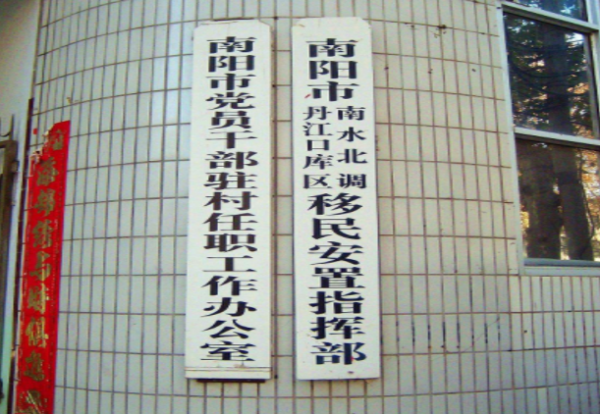 南阳市
南水北调
丹江口库区
移民安置指挥部
南阳市党员干部驻村任职工作办公室